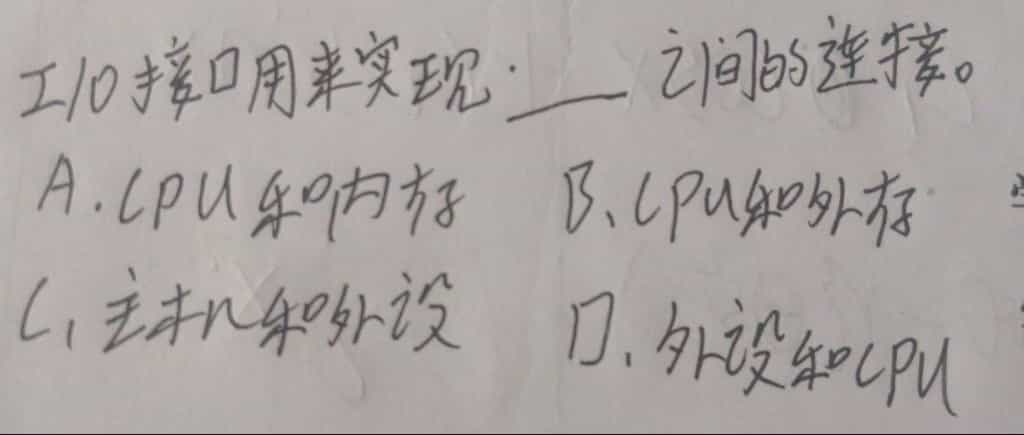 I/O接口用来实现.____之间的连接。
A.CPU和内存 B、CPU和外存
C、主机和外设 D、外设和CPU